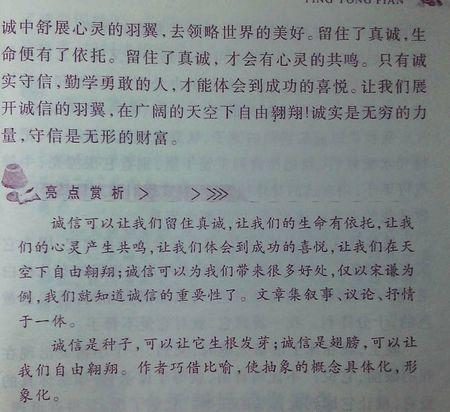 YING YONG PIAN
诚中舒展心灵的羽翼,去领略世界的美好。留住了真诚,生
命便有了依托。留住了真诚,才会有心灵的共鸣。只有诚
实守信,勤学勇敢的人,才能体会到成功的喜悦。让我们展
开诚信的羽翼,在广阔的天空下自由翱翔!诚实是无穷的力
量,守信是无形的财富。
亮点赏析
诚信可以让我们留住真诚,让我们的生命有依托,让我
们的心灵产生共鸣,让我们体会到成功的喜悦,让我们在天
空下自由翱翔;诚信可以为我们带来很多好处,仅以宋谦为
例,我们就知道诚信的重要性了。文章集叙事、议论、抒情
于一体。
诚信是种子,可以让它生根发芽;诚信是翅膀,可以让
我们自由翱翔。作者巧借比喻,使抽象的概念具体化,形
象化。